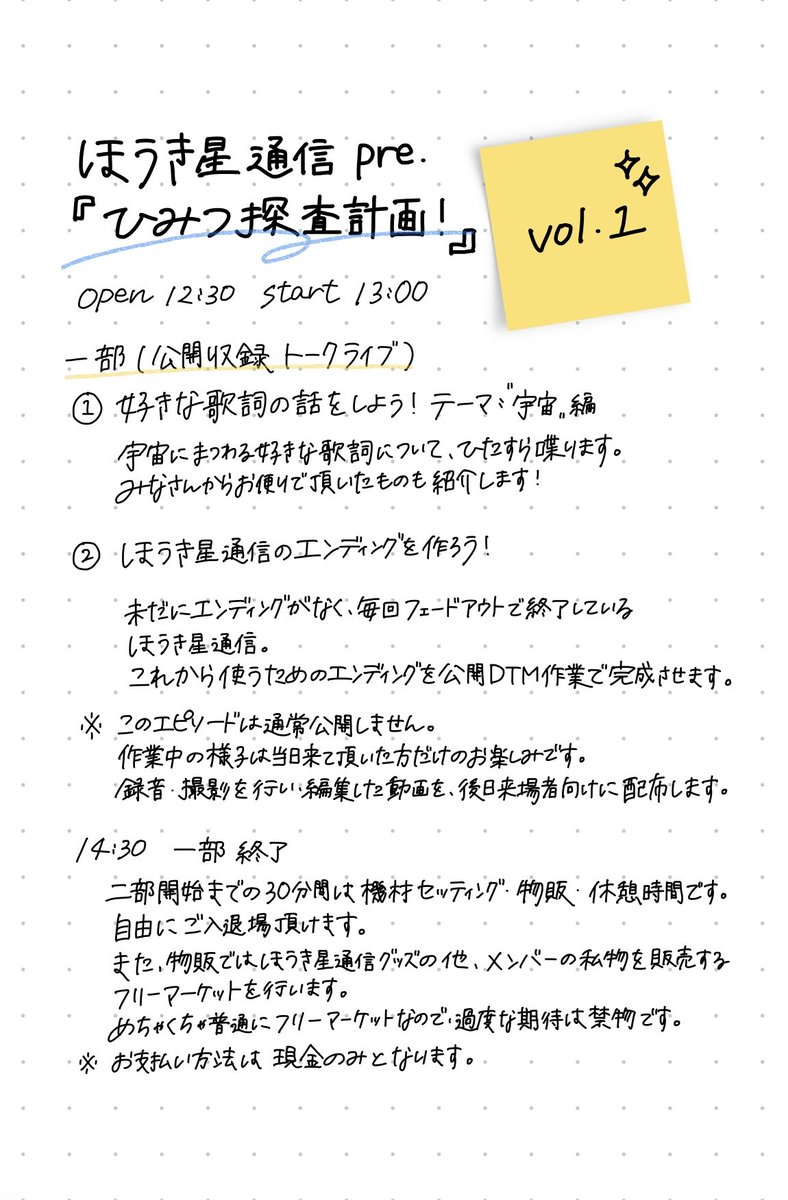 ほうき星通信 pre.
『ひみつ探査計画！』
vol.1
open 12:30 start 13:00
一部（公開収録 トークライブ）
① 好きな歌詞の話をしよう！ テーマ〝宇宙〟編
宇宙にまつわる好きな歌詞について、ひたすら喋ります。
みなさんからお便りで頂いたものも紹介します！
② ほうき星通信のエンディングを作ろう！
未だにエンディングがなく、毎回フェードアウトで終了している
ほうき星通信。
これから使うためのエンディングを公開DTM作業で完成させます。
※ このエピソードは通常公開しません。
作業中の様子は当日来て頂いた方だけのお楽しみです。
録音・撮影を行い、編集した動画を、後日来場者向けに配布します。
14:30 一部 終了
二部開始までの30分間は機材セッティング・物販・休憩時間です。
自由にご入退場頂けます。
また、物販ではほうき星通信グッズの他、メンバーの私物を販売する
フリーマーケットを行います。
めちゃくちゃ普通にフリーマーケットなので、過度な期待は禁物です。
※ お支払い方法は現金のみとなります。